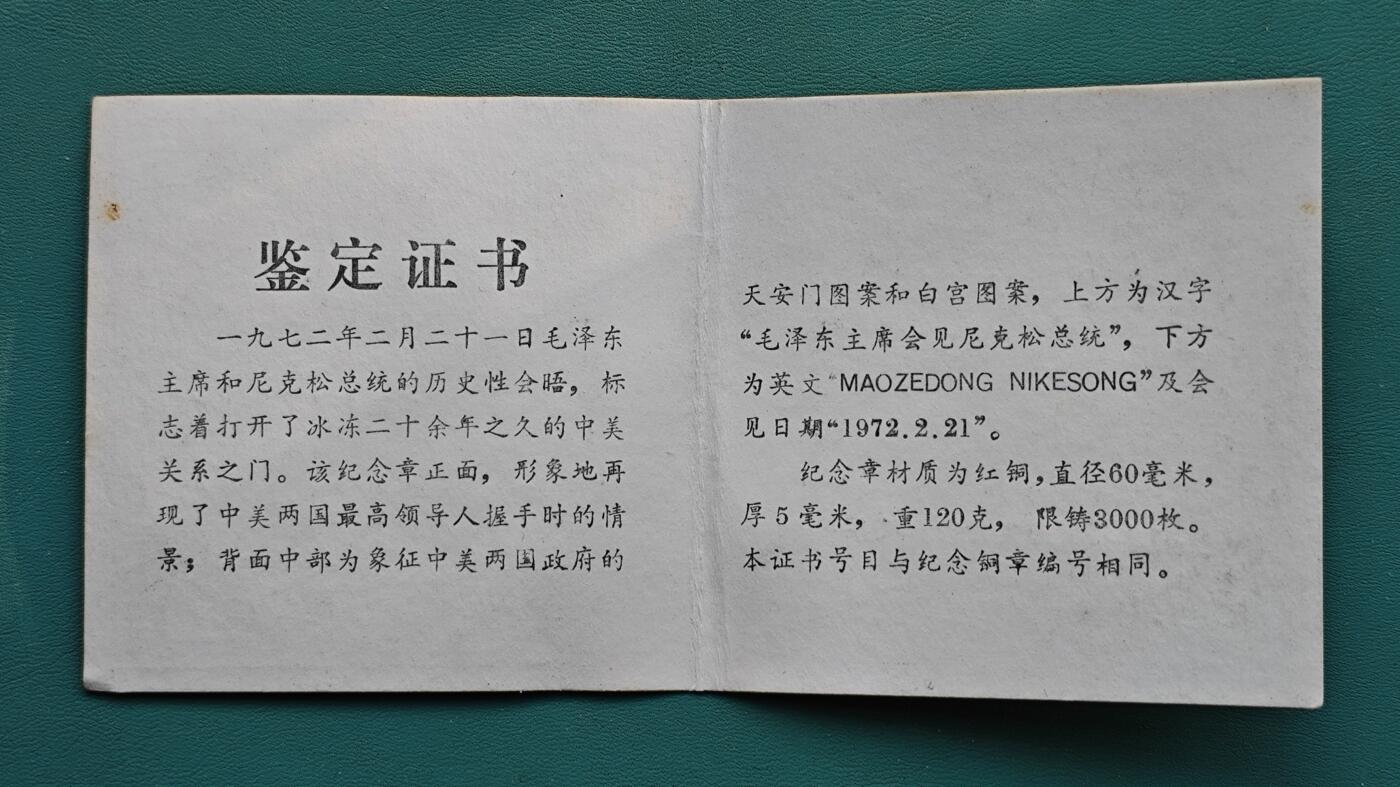 鉴定证书
一九七二年二月二十一日毛泽东
主席和尼克松总统的历史性会晤，标
志着打开了冰冻二十余年之久的中美
关系之门。该纪念章正面，形象地再
现了中美两国最高领导人握手时的情
景；背面中部为象征中美两国政府的
天安门图案和白宫图案，上方为汉字
“毛泽东主席会见尼克松总统”，下方
为英文“MAOZEDONG NIKESONG”及会
见日期“1972.2.21”。
纪念章材质为红铜，直径60毫米，
厚5毫米，重120克，限铸3000枚。
本证书号目与纪念铜章编号相同。